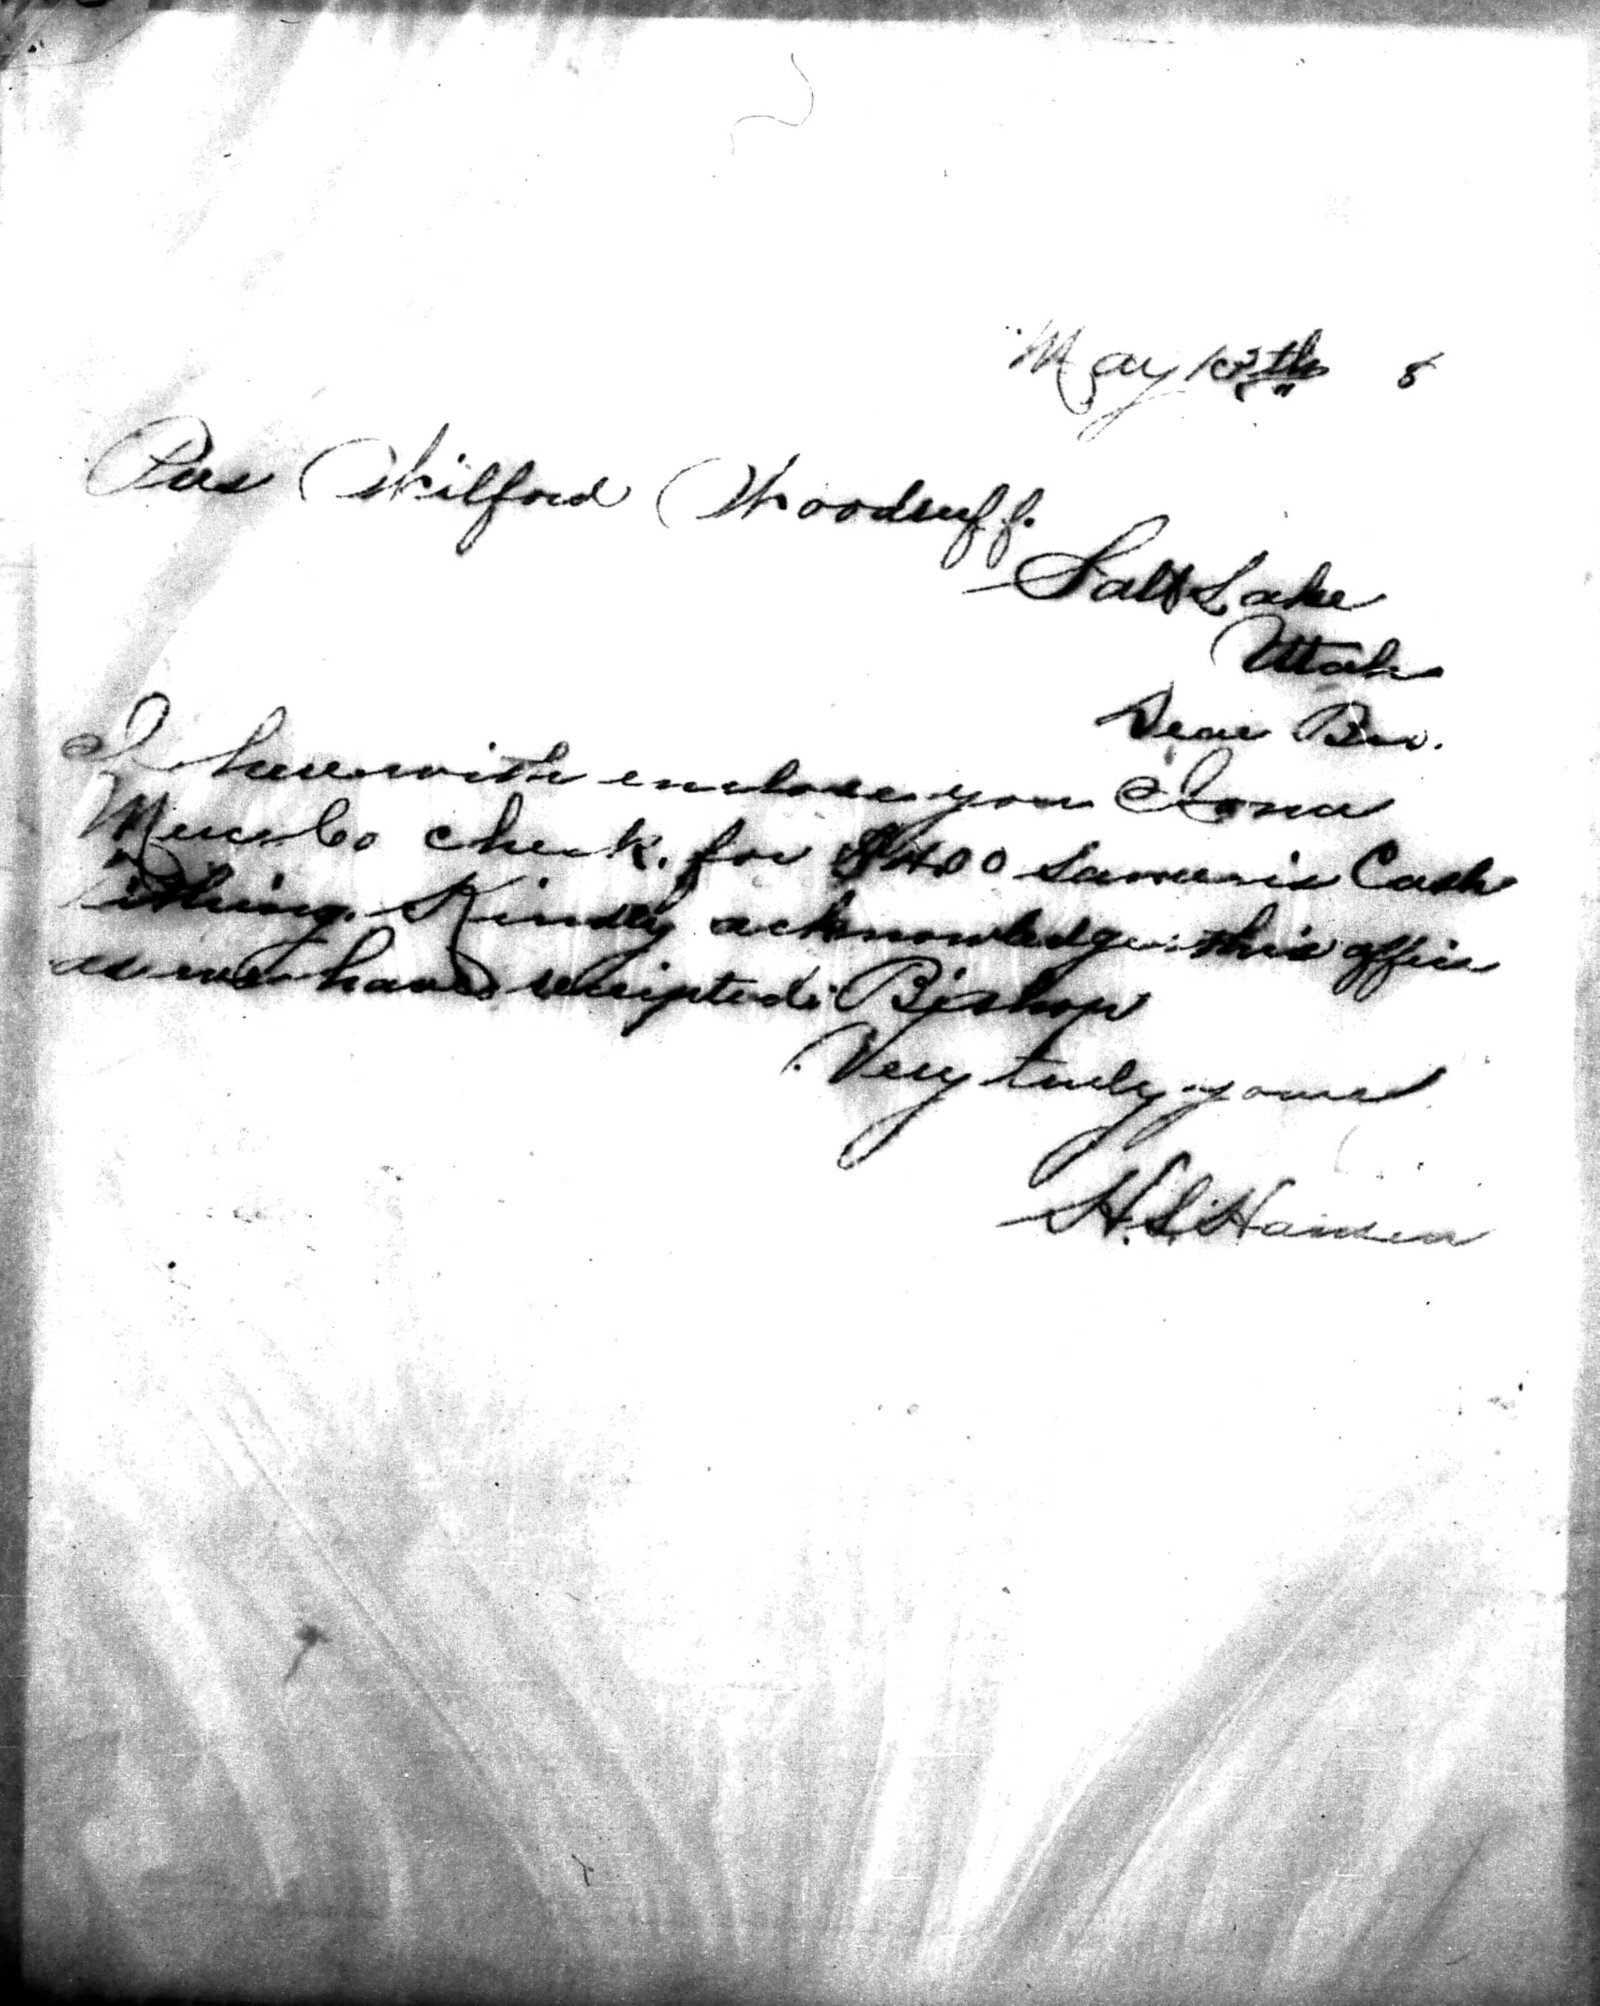 May 13th 8
Pres Wilford Woodruff.
Salt Lake
Utah
Dear Bro.
I herewith enclose you Iona
Merc Co check. for $400 same is Cash
tithing. Kindly acknowledge this office
as we have receipted Bishop
Very truly yours
H. L. Hansen